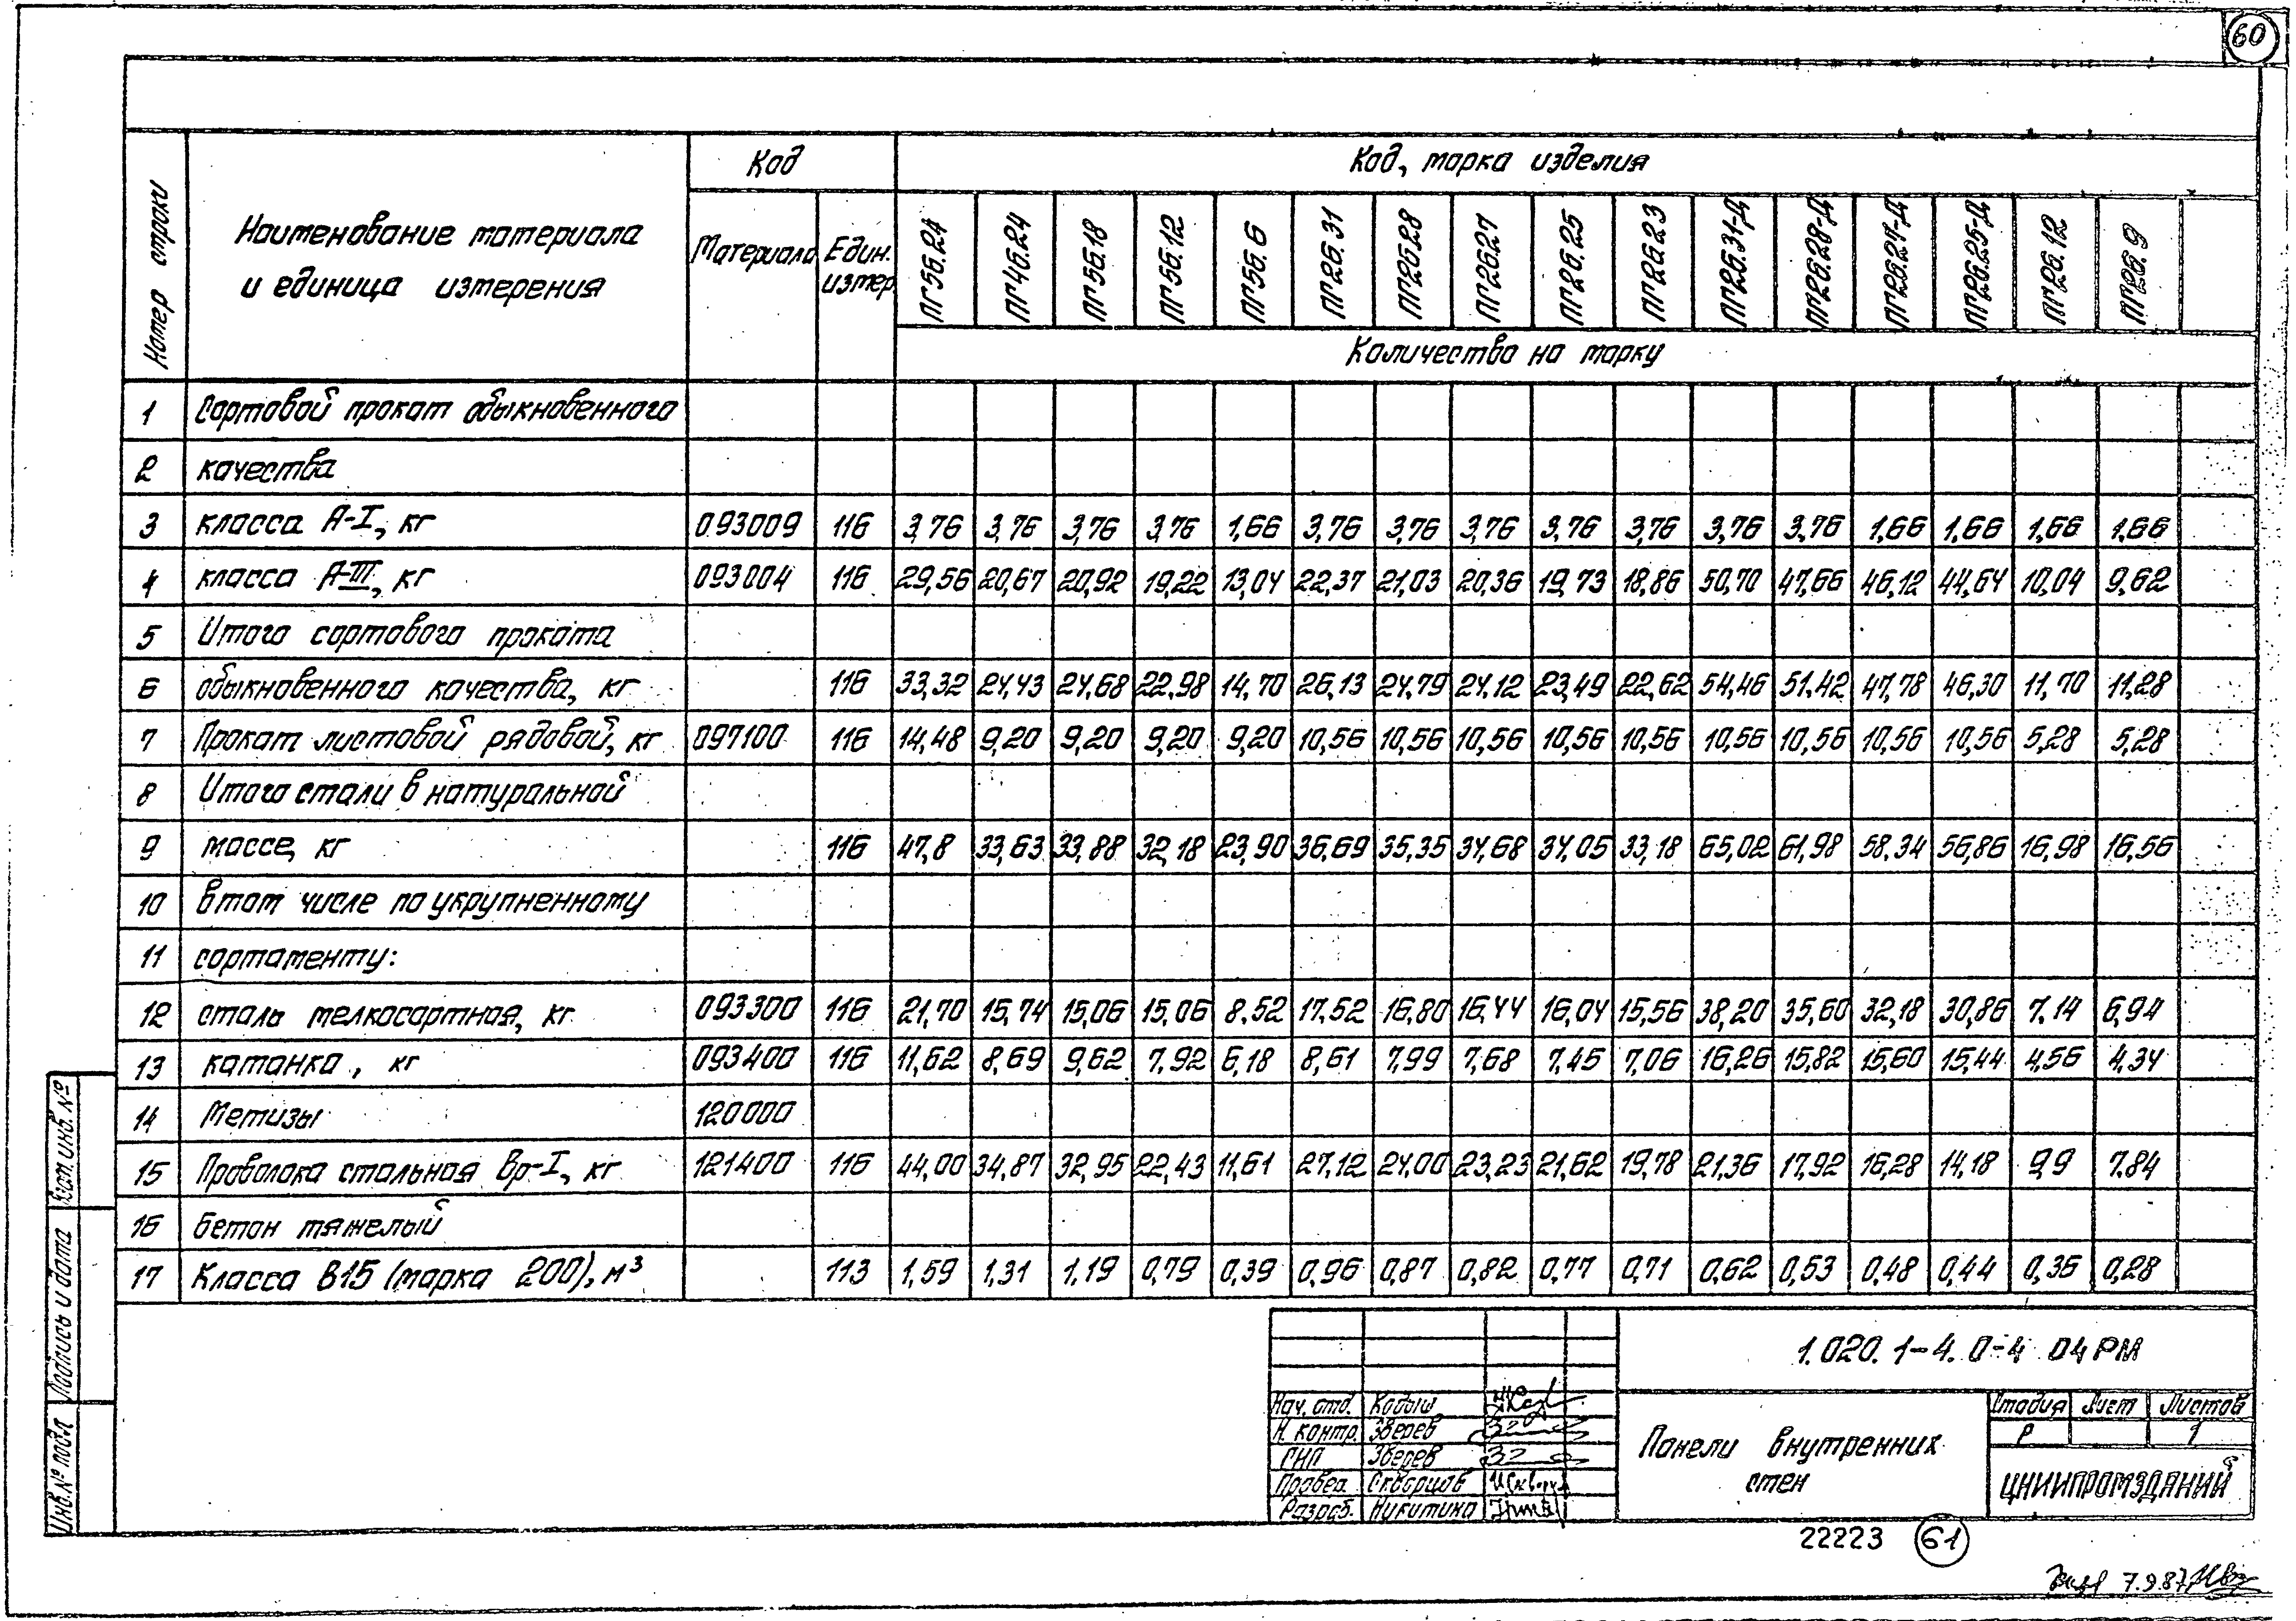 60
Номер строки
Наименование материала
и единица измерения
Код
Материала
Един. измер.
Код, марка изделия
ПГ56.24 ПГ46.24 ПГ56.18 ПГ56.12 ПГ56.6 ПГ26.31 ПГ26.28 ПГ26.27 ПГ26.25 ПГ26.23 ПГ26.31-Д ПГ26.28-Д ПГ26.27-Д ПГ26.25-Д ПГ26.12 ПГ26.9
Количество на марку
1 Сортовой прокат обыкновенного
2 качества
3 класса А-I, кг 093009 116 3,76 3,76 3,76 3,76 1,66 3,76 3,76 3,76 3,76 3,76 3,76 3,76 1,66 1,66 1,66 1,66
4 класса А-III, кг 093004 116 29,56 20,67 20,92 19,22 13,04 22,37 21,03 20,36 19,73 18,86 50,70 47,66 46,12 44,64 10,04 9,62
5 Итого сортового проката
6 обыкновенного качества, кг 116 33,32 24,43 24,68 22,98 14,70 26,13 24,79 24,12 23,49 22,62 54,46 51,42 47,78 46,30 11,70 11,28
7 Прокат листовой рядовой, кг 097100 116 14,48 9,20 9,20 9,20 9,20 10,56 10,56 10,56 10,56 10,56 10,56 10,56 10,56 10,56 5,28 5,28
8 Итого стали в натуральной
9 массе, кг 116 47,8 33,63 33,88 32,18 23,90 36,69 35,35 34,68 34,05 33,18 65,02 61,98 58,34 56,86 16,98 16,56
10 в том числе по укрупненному
11 сортаменту:
12 сталь мелкосортная, кг 093300 116 21,70 15,74 15,06 15,06 8,52 17,52 16,80 16,44 16,04 15,56 38,20 35,60 32,18 30,86 7,14 6,94
13 катанка, кг 093400 116 11,62 8,69 9,62 7,92 6,18 8,61 7,99 7,68 7,45 7,06 16,26 15,82 15,60 15,44 4,56 4,34
14 Метизы 120000
15 Проволока стальная Вр-I, кг 121400 116 44,00 34,87 32,95 22,43 11,61 27,12 24,00 23,23 21,62 19,78 21,36 17,92 16,28 14,18 9,9 7,84
16 Бетон тяжелый
17 Класса В15 (марка 200), м³ 113 1,59 1,31 1,19 0,79 0,39 0,96 0,87 0,82 0,77 0,71 0,62 0,53 0,48 0,44 0,36 0,28
Взам. инв. №
Подпись и дата
Инв. № подл
1.020.1-4.0-4 04РМ
Нач. отд. Кодыш
Н. контр. Зверев
ГИП Зверев
Провер. Скворцов
Разраб. Никитина
Панели внутренних
стен
Стадия Лист Листов
Р 1
ЦНИИПРОМЗДАНИЙ
22223 61
7.9.87